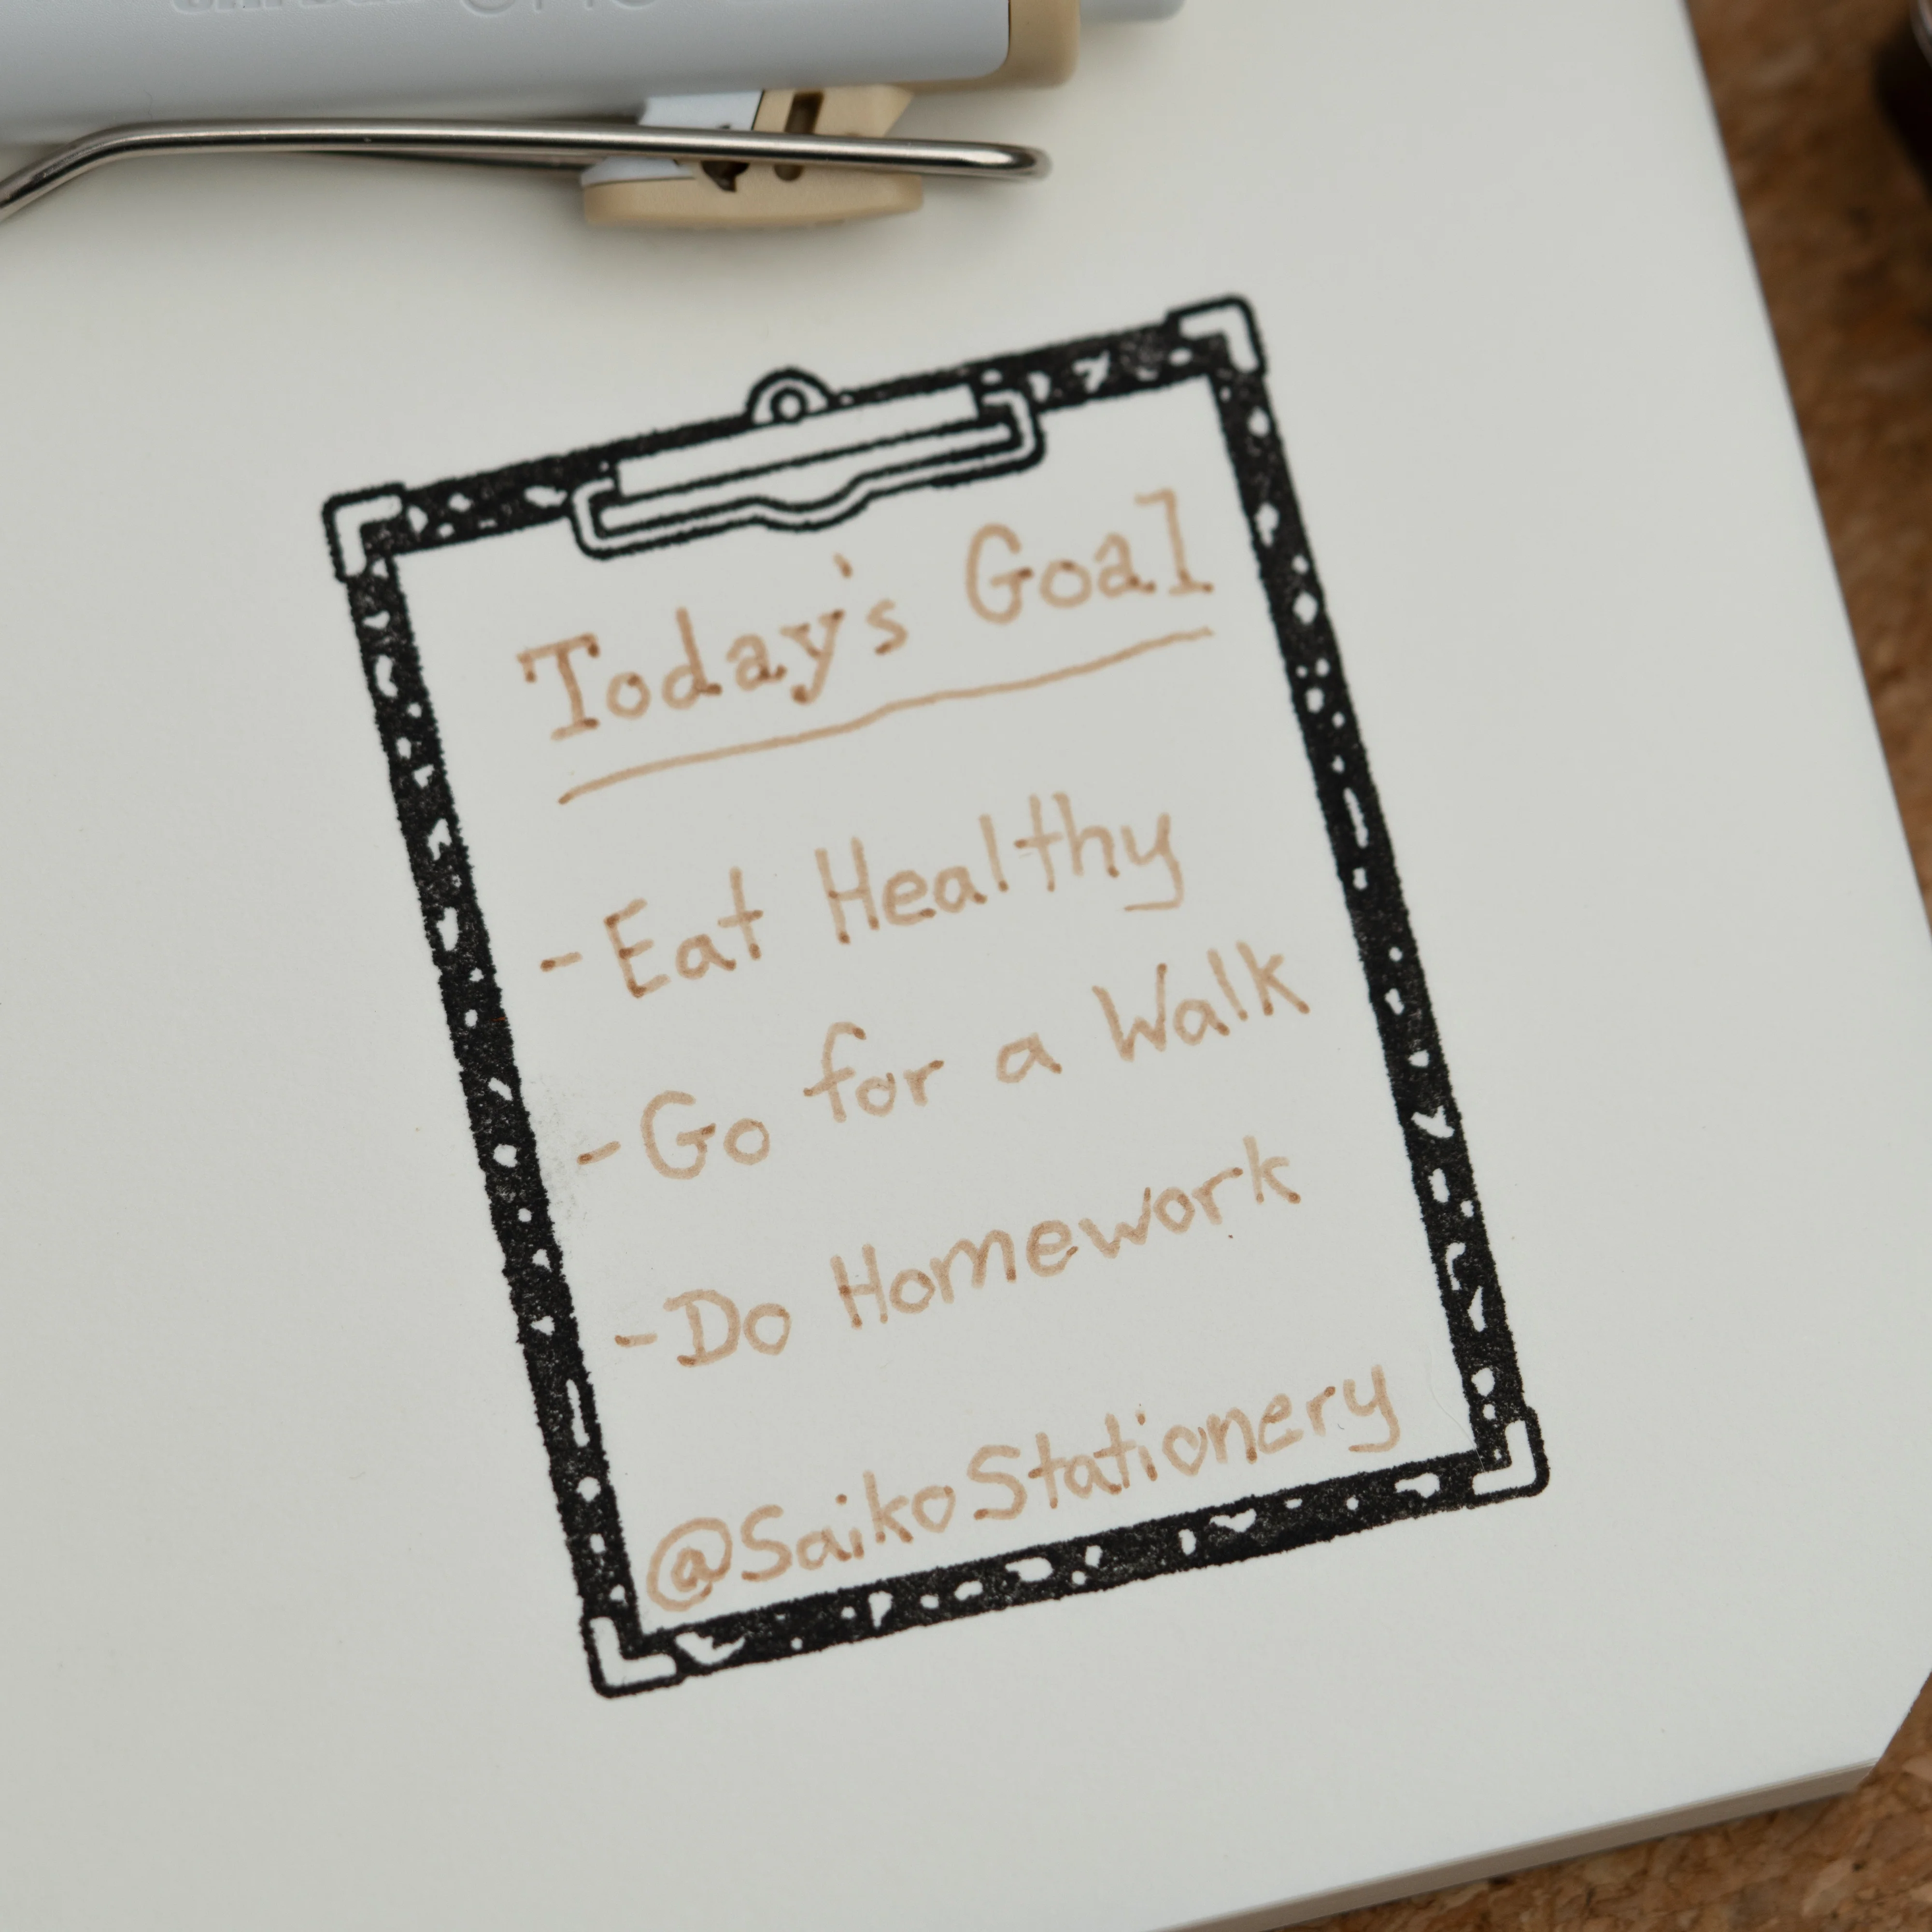 Today's Goal
- Eat Healthy
- Go for a Walk
- Do Homework
@SaikoStationery